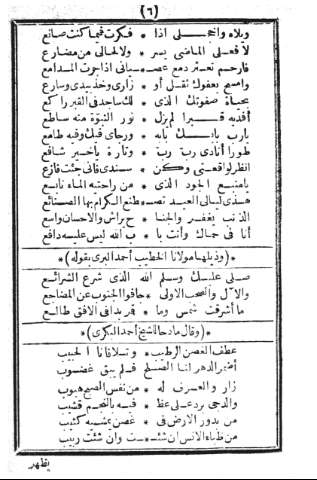 (٦)
ويلاه واخجلي اذا * فكرت فيما كنت صانع
لا فعلي الماضي يسر * ولا لحالي من مضارع
فارحم تعثر دمع عصـ * ياني اذا جرت المدامع
وامح بعفوك ثقل أو * زاري وخذ بيدي وسارع
بحياة صفوتك الذي * لك ساجد في القبر راكع
أفديه قبرا لم يزل * نور النبوة منه ساطع
يارب بابك بابه * ورجاي فيك وفيه طامع
طورا أنادي رب ربه * وتارة ياخير شافع
انظر لواقعتي وكن * سندي فاني جئت فازع
يا منبع الجود الذي * من راحتيه الماء نابع
هذي ليالي العيد تصـ * طنع الكرام بها الصنائع
الذنب يغفر والجنا * ح يراش والاحسان واسع
أنا في حماك وأنت با * ب الله ليس عليه دافع
*(وذيلها مولانا الخطيب أحمد البري بقوله)*
صلى عليك وسلم الله الذي شرع الشرائع
والآل والصحب الاولى * جافوا الجنوب عن المضاجع
ما أشرقت شمس وما * قمر بدا في الافق طالع
*(وقال مادحا للشيخ أحمد البكري)*
عطف الغصن الرطيب * وتلافانا الحبيب
أضمر الدهر لنا الصلح * فلم يبق غضوب
زار والعرف له * من نفس الصبح هبوب
والدجى برد على عطـ * فيه بالنجم قشيب
من بدور الارض في * غصن يمشيه كثيب
من ظباء الانس ان شئـ * ت وان شئت ربيب
يظهر